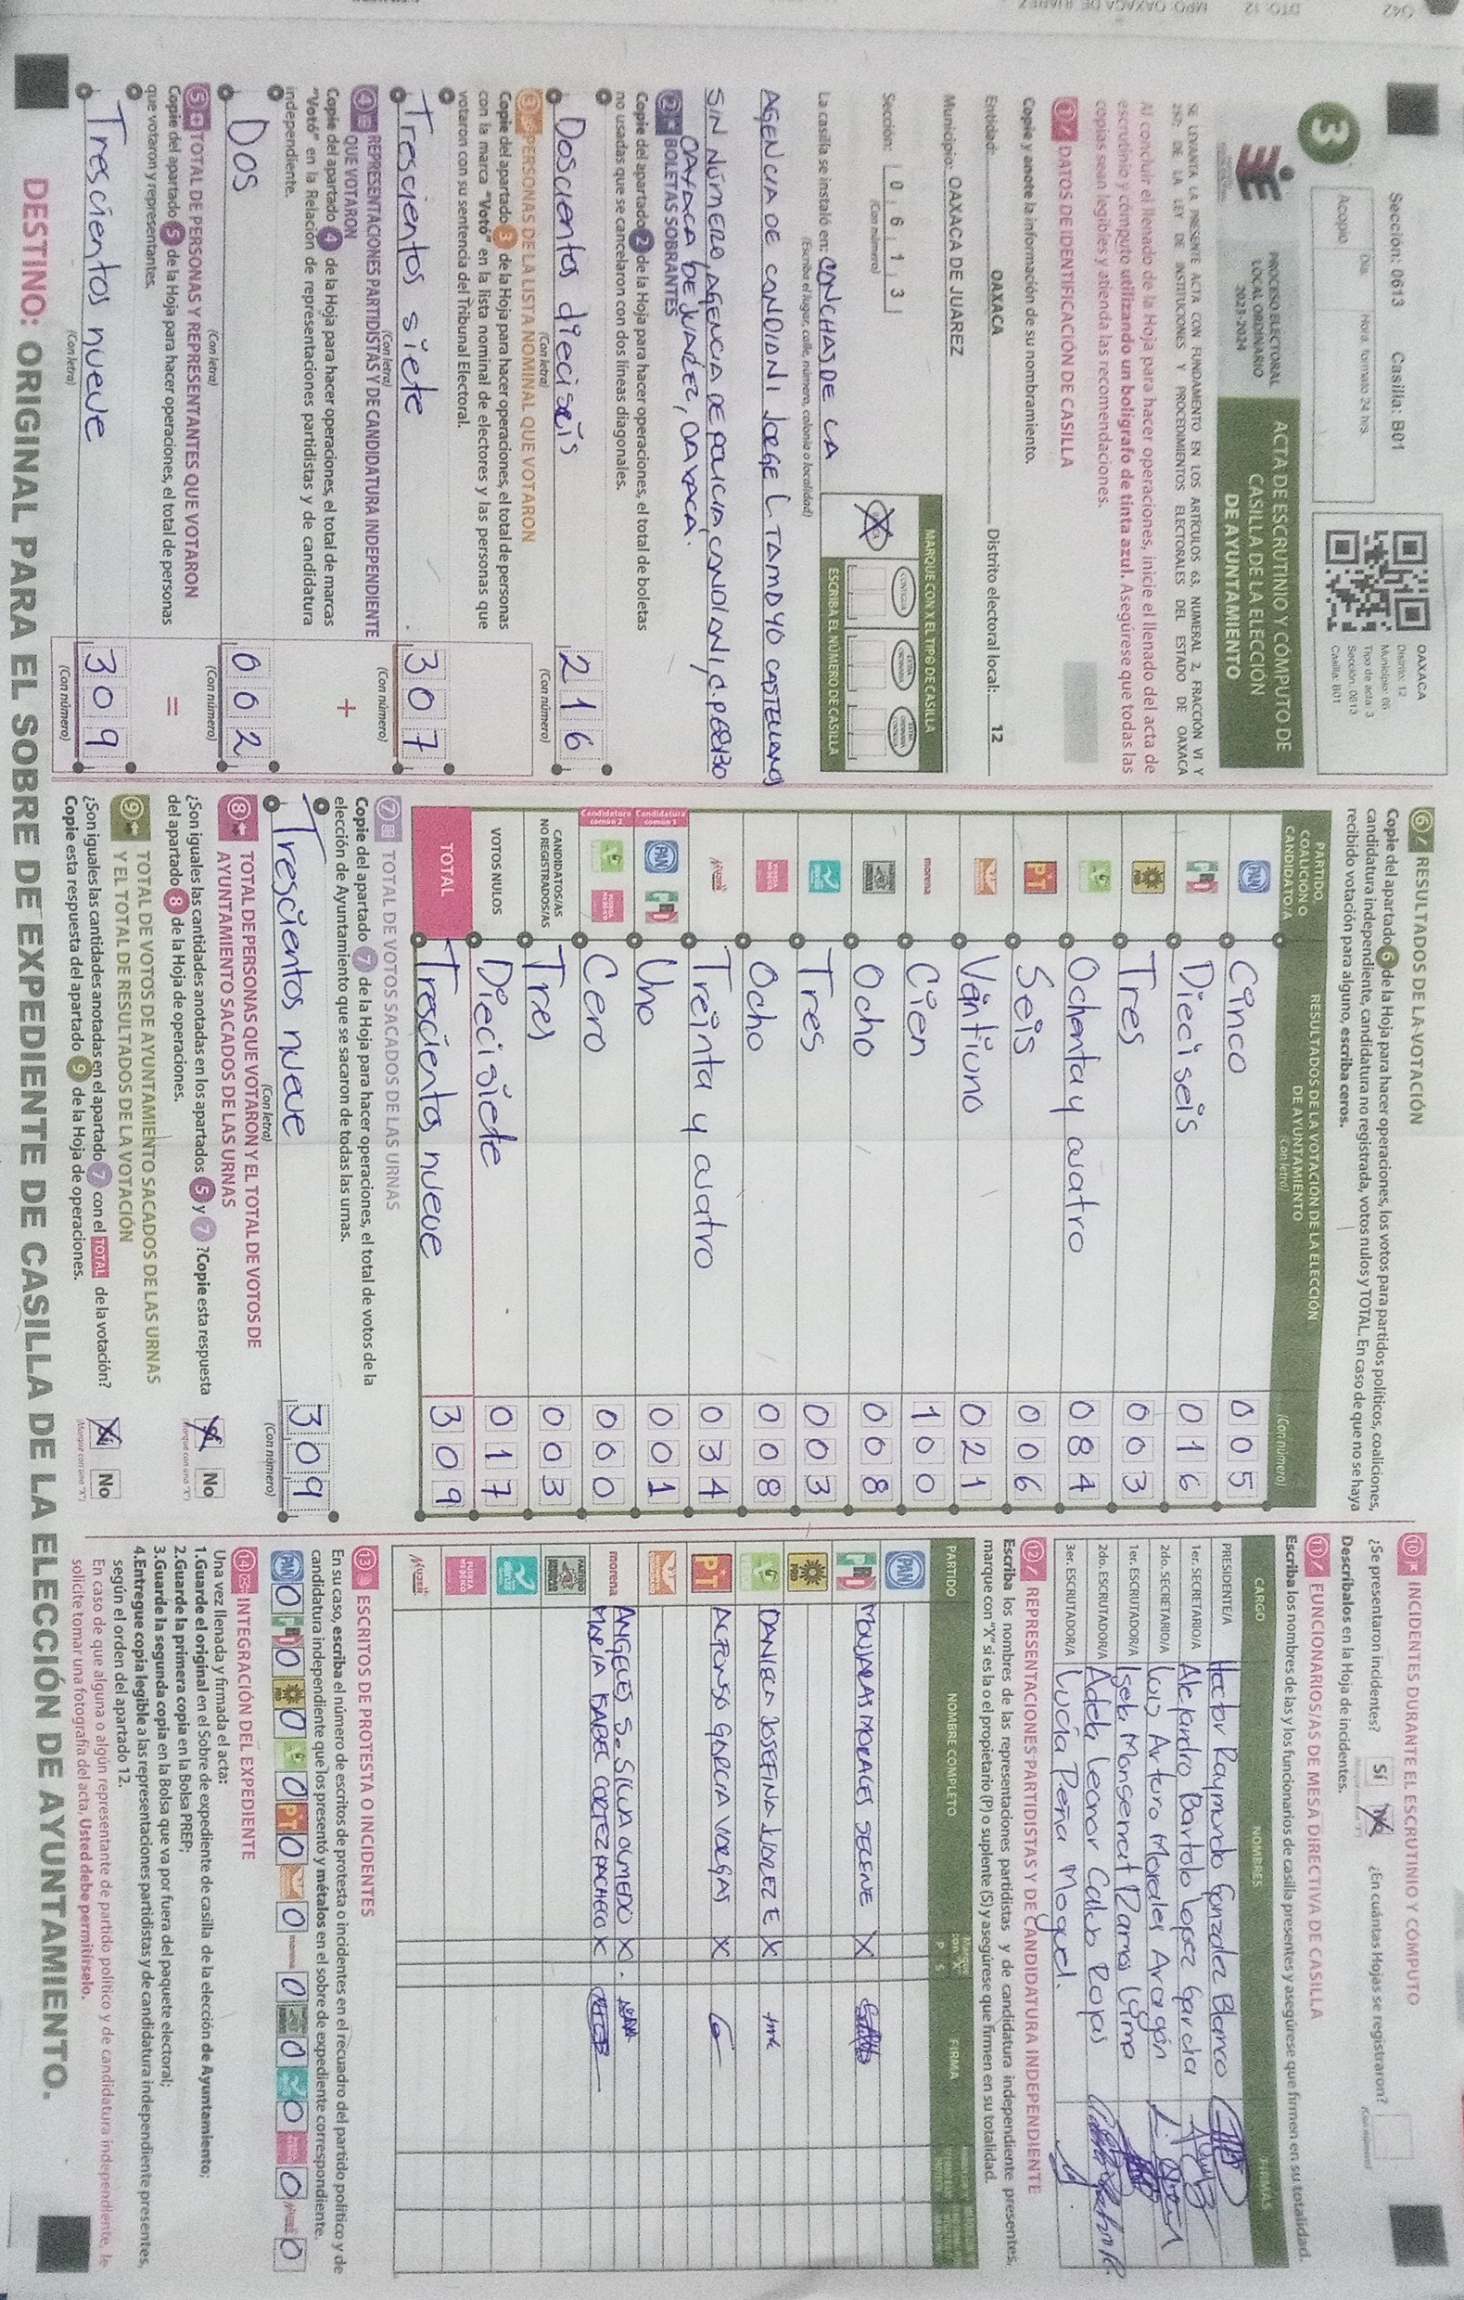 Sección: 0613 Casilla: B01
Acopio
Día
Hora: formato 24 hrs.
OAXACA
Distrito: 12
Tipo de acta: 3
Sección: 0613
Casilla: B01
3
PROCESO ELECTORAL
LOCAL ORDINARIO
2023-2024
ACTA DE ESCRUTINIO Y CÓMPUTO DE
CASILLA DE LA ELECCIÓN
DE AYUNTAMIENTO
SE LEVANTA LA PRESENTE ACTA CON FUNDAMENTO EN LOS ARTÍCULOS 63, NUMERAL 2, FRACCIÓN VI Y
DE LA LEY DE INSTITUCIONES Y PROCEDIMIENTOS ELECTORALES DEL ESTADO DE OAXACA
Al concluir el llenado de la Hoja para hacer operaciones, inicie el llenado del acta de
escrutinio y cómputo utilizando un bolígrafo de tinta azul. Asegúrese que todas las
copias sean legibles y atienda las recomendaciones.
1 DATOS DE IDENTIFICACIÓN DE CASILLA
Copie y anote la información de su nombramiento.
Entidad: OAXACA Distrito electoral local: 12
Municipio: OAXACA DE JUAREZ
Sección: 0 6 1 3
(Con número)
MARQUE CON X EL TIPO DE CASILLA
ESCRIBA EL NÚMERO DE CASILLA
La casilla se instaló en: CONCHAS DE LA
(Escriba el lugar, calle, número, colonia o localidad)
AGENCIA DE CANDIANI JORGE L TAMAYO CASTELLANOS
SIN NÚMERO, AGENCIA DE POLICIA, CANDIANI, C.P. 68130
OAXACA DE JUAREZ, OAXACA.
2 BOLETAS SOBRANTES
Copie del apartado 2 de la Hoja para hacer operaciones, el total de boletas
no usadas que se cancelaron con dos líneas diagonales.
Doscientos dieciseis 216
(Con letra) (Con número)
3 PERSONAS DE LA LISTA NOMINAL QUE VOTARON
Copie del apartado 3 de la Hoja para hacer operaciones, el total de personas
con la marca "Votó" en la lista nominal de electores y las personas que
votaron con su sentencia del Tribunal Electoral.
Trescientos siete 307
(Con letra) (Con número)
4 REPRESENTACIONES PARTIDISTAS Y DE CANDIDATURA INDEPENDIENTE
QUE VOTARON
+
Copie del apartado 4 de la Hoja para hacer operaciones, el total de marcas
"Votó" en la Relación de representaciones partidistas y de candidatura
independiente.
Dos 002
(Con letra) (Con número)
5 TOTAL DE PERSONAS Y REPRESENTANTES QUE VOTARON
=
Copie del apartado 5 de la Hoja para hacer operaciones, el total de personas
que votaron y representantes.
Trescientos nueve 309
(Con letra) (Con número)
6 RESULTADOS DE LA VOTACIÓN
Copie del apartado 6 de la Hoja para hacer operaciones, los votos para partidos políticos, coaliciones,
candidatura independiente, candidatura no registrada, votos nulos y TOTAL. En caso de que no se haya
recibido votación para alguno, escriba ceros.
PARTIDO,
COALICIÓN O
CANDIDATO/A
RESULTADOS DE LA VOTACIÓN DE LA ELECCIÓN
DE AYUNTAMIENTO
(Con letra) (Con número)
PAN Cinco 005
PRI Dieciseis 016
PRD Tres 003
Ochenta y cuatro 084
PT Seis 006
Vāntiuno 021
morena Cien 100
Ocho 008
Tres 003
FUERZA MÉXICO Ocho 008
Mujer Treinta y cuatro 034
Candidatura común 1 PAN PRI Uno 001
Candidatura común 2 Cero 000
CANDIDATOS/AS
NO REGISTRADOS/AS Tres 003
VOTOS NULOS Diecisiete 017
TOTAL Trescientos nueve 309
7 TOTAL DE VOTOS SACADOS DE LAS URNAS
Copie del apartado 7 de la Hoja para hacer operaciones, el total de votos de la
elección de Ayuntamiento que se sacaron de todas las urnas.
Trescientos nueve 309
(Con letra) (Con número)
8 TOTAL DE PERSONAS QUE VOTARON Y EL TOTAL DE VOTOS DE
AYUNTAMIENTO SACADOS DE LAS URNAS
¿Son iguales las cantidades anotadas en los apartados 5 y 7 ? Copie esta respuesta
del apartado 8 de la Hoja de operaciones.
No
9 TOTAL DE VOTOS DE AYUNTAMIENTO SACADOS DE LAS URNAS
Y EL TOTAL DE RESULTADOS DE LA VOTACIÓN
¿Son iguales las cantidades anotadas en el apartado 7 con el TOTAL de la votación?
Copie esta respuesta del apartado 9 de la Hoja de operaciones.
No
10 INCIDENTES DURANTE EL ESCRUTINIO Y CÓMPUTO
¿Se presentaron incidentes? Sí ¿En cuántas Hojas se registraron?
Descríbalos en la Hoja de incidentes.
11 FUNCIONARIOS/AS DE MESA DIRECTIVA DE CASILLA
Escriba los nombres de las y los funcionarios de casilla presentes y asegúrese que firmen en su totalidad.
CARGO NOMBRES FIRMAS
PRESIDENTE/A Hector Raymundo Gonzalez Blanco
1er. SECRETARIO/A Alejandro Bartolo Lopez Garcia
2do. SECRETARIO/A Luis Arturo Morales Aragón
1er. ESCRUTADOR/A Isela Monserrat Ramos Lima
2do. ESCRUTADOR/A Adela Leonor Calvo Rojas
3er. ESCRUTADOR/A Lucía Peña Moguel.
12 REPRESENTACIONES PARTIDISTAS Y DE CANDIDATURA INDEPENDIENTE
Escriba los nombres de las representaciones partidistas y de candidatura independiente presentes,
marque con "X" si es la o el propietario (P) o suplente (S) y asegúrese que firmen en su totalidad.
PARTIDO NOMBRE COMPLETO P S FIRMA
PAN
PRI MORALES SELENE X
PRD
DANIELA JOSEFINA X
PT ALFONSO GARCIA VARGAS X
morena ANGELES S. SILVA OLMEDO X
MARIA ISABEL CORTEZ PACHECO X
Mujer
13 ESCRITOS DE PROTESTA O INCIDENTES
En su caso, escriba el número de escritos de protesta o incidentes en el recuadro del partido político y de
candidatura independiente que los presentó y métalos en el sobre de expediente correspondiente.
PAN 0 PRI 0 PRD 0 0 PT 0 0 morena 0 0 0 0 0
14 INTEGRACIÓN DEL EXPEDIENTE
Una vez llenada y firmada el acta:
1.Guarde el original en el Sobre de expediente de casilla de la elección de Ayuntamiento;
2.Guarde la primera copia en la Bolsa PREP;
3.Guarde la segunda copia en la Bolsa que va por fuera del paquete electoral;
4.Entregue copia legible a las representaciones partidistas y de candidatura independiente presentes,
según el orden del apartado 12.
En caso de que alguna o algún representante de partido político y de candidatura independiente, le
solicite tomar una fotografía del acta, Usted debe permitírselo.
DESTINO: ORIGINAL PARA EL SOBRE DE EXPEDIENTE DE CASILLA DE LA ELECCIÓN DE AYUNTAMIENTO.